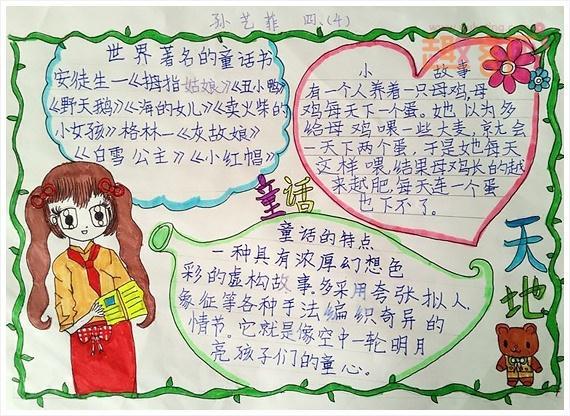 孙艺菲 四、(4)
世界著名的童话书
安徒生一《拇指姑娘》《丑小鸭》
《野天鹅》《海的女儿》《卖火柴的
小女孩》格林一《灰故娘》
《白雪公主》《小红帽》
小 故事
有一个人养着一只母鸡,母
鸡每天下一个蛋。她以为多
给母鸡喂一些大麦,就会
一天下两个蛋,于是她每天
这样喂,结果母鸡长的越
来越肥,每天连一个蛋
也下不了。
童话
天地
童话的特点
一种具有浓厚幻想色
彩的虚构故事,多采用夸张、拟人、
象征等各种手法编织奇异的
情节。它就是像空中一轮明月
亮孩子们的童心。